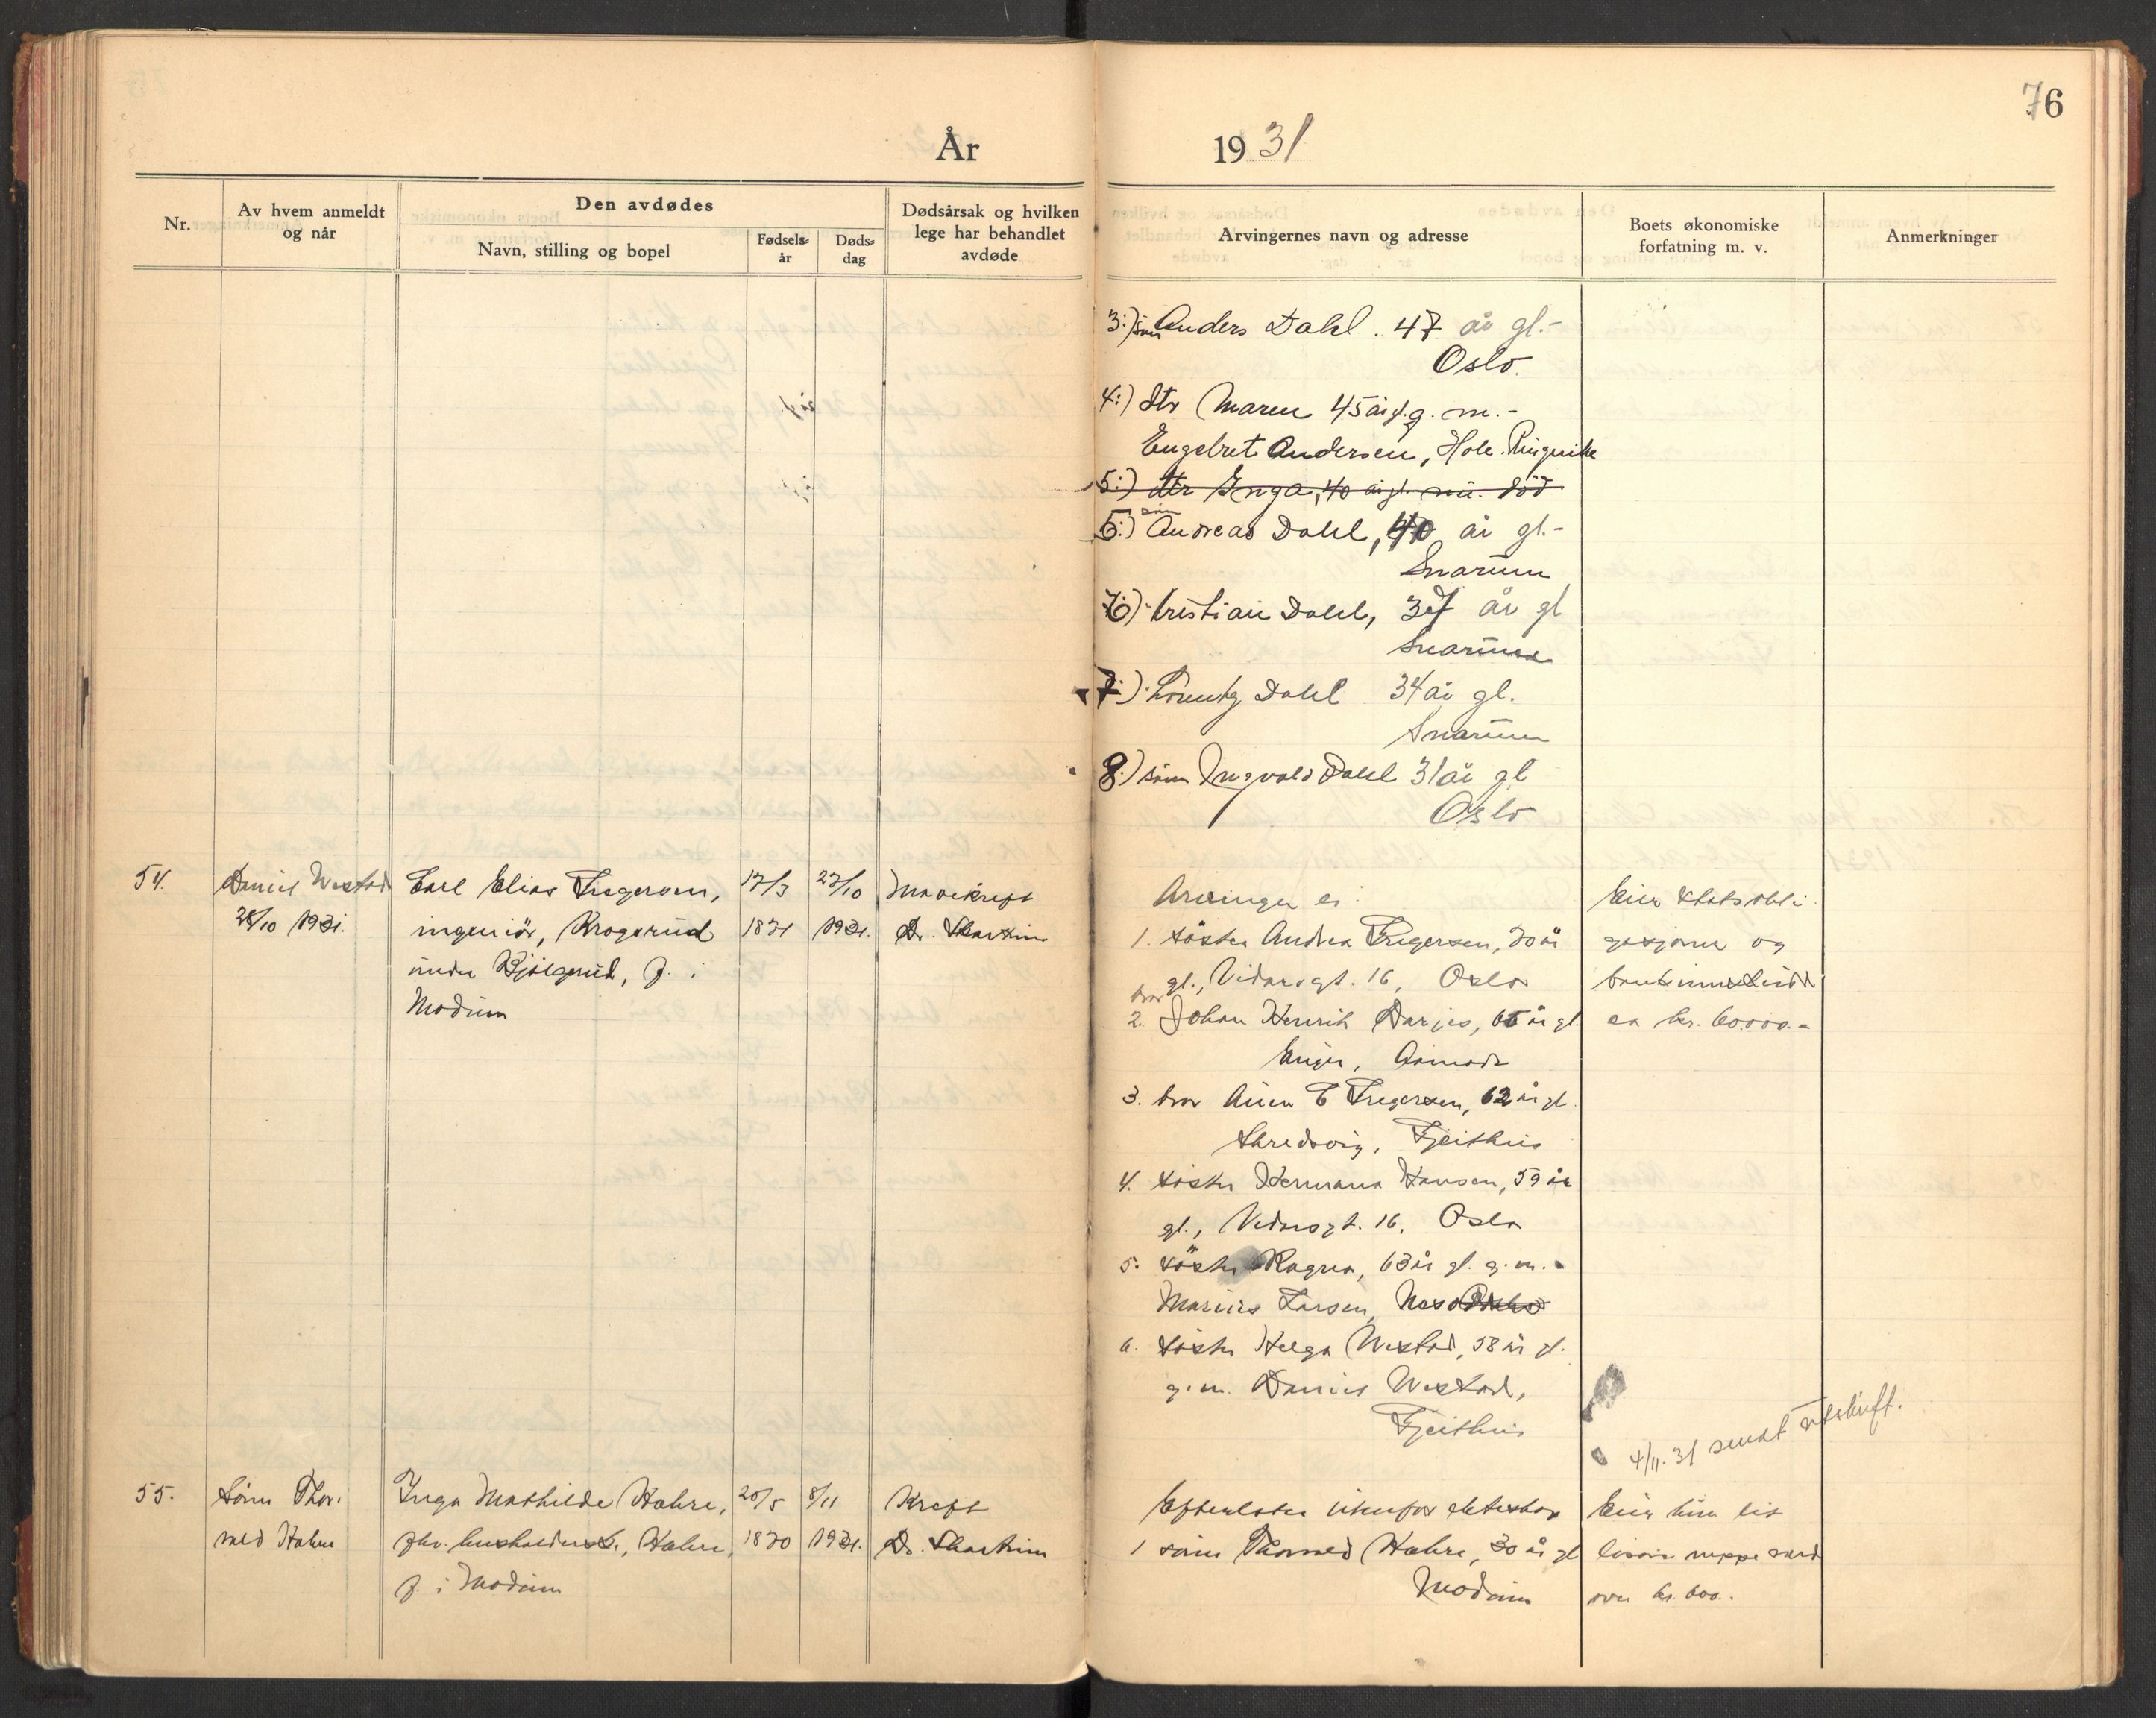 76
År 1931
Nr.
Av hvem anmeldt
og når
Den avdødes
Navn, stilling og bopel
Fødsels-
år
Døds-
dag
Dødsårsak og hvilken
lege har behandlet
avdøde
Arvingernes navn og adresse
Boets økonomiske
forfatning m. v.
Anmerkninger
3:) søn Anders Dahl. 47 år gl.-
Oslo.
4:) dtr Maren 45 år gl. g. m.-
Engebret Andersen, Hole. Ringerike
5:) dtr Inga, 40 år gl. død
5:) søn Andreas Dahl, 40 år gl.-
Snarum
6) Kristian Dahl, 37 år gl
Snarum
7:) Dahl 34 år gl.
Snarum
8:) søn Ingvald Dahl 31 år gl
Oslo
54.
Daniel Westad
28/10 1931.
Carl Elias Fregersen,
ingeniör, Krogsrud
under Bjölgerud, f. i
Modum
17/3
1871
27/10
1931.
Mavekreft
Dr.
Arvinger er
1. söster Andrea Fregersen, 70 år
gl., Vidarsgt. 16, Oslo
bror
2. Johan Henrik Darjes, 65 år gl.
Enger, Åmodt
3. bror E Fregersen, 62 år gl.
Skredsvig, Fjeithus
4. söster Hermana Hansen, 59 år
gl., Vidarsgt. 16, Oslo
5. söster Ragna, 63 år gl. g. m.
Marius Larsen,
6. söster Helga Westad, 58 år gl.
g. m. Daniel Westad,
Fjeithus
Eier statsobli
gasjoner og
bankinnskudd
ca kr. 60.000.-
4/11. 31 sendt utskrift.
55.
sönn Thor-
vald Hahre
Inga Mathilde Hahre,
fhv. husholderske, Hahre,
f. i Modum
20/5
1870
8/11
1931.
Kreft
Dr.
Efterlater utenfor ekteskap
1 sönn Thorvald Hahre, 30 år gl
Modum
Eier kun litt
lösöre neppe verd
over kr. 600.